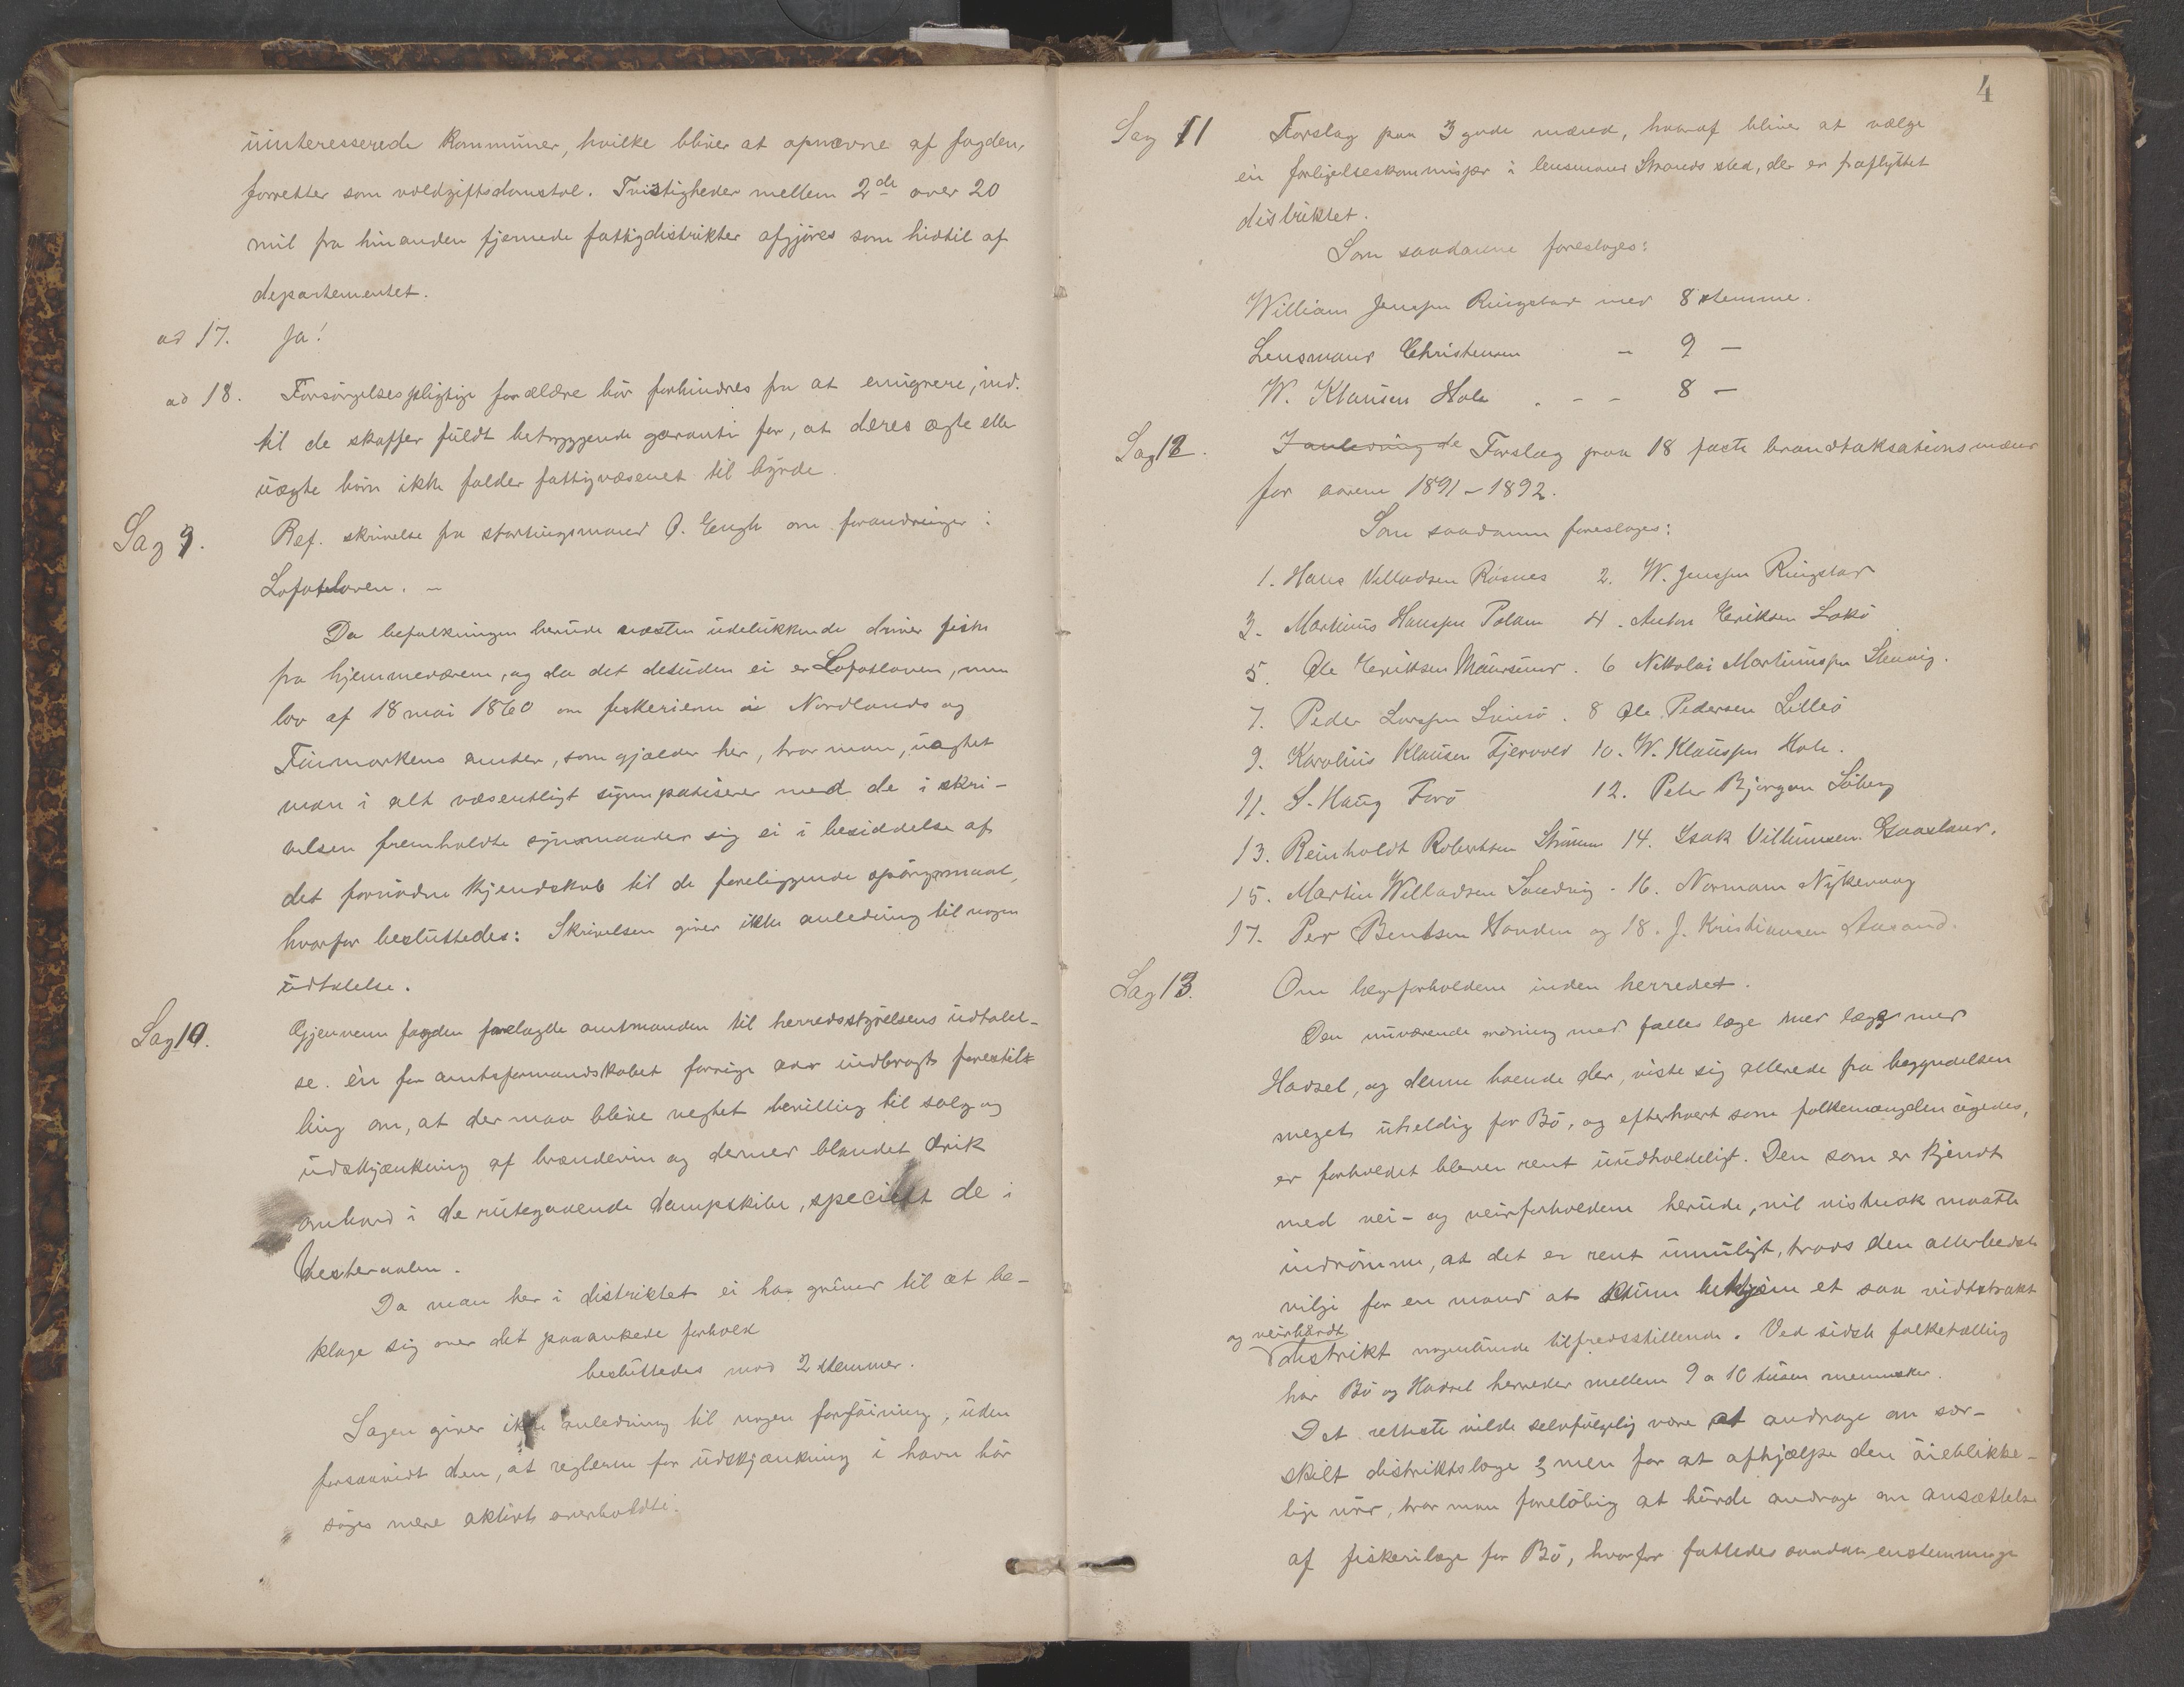 uinteresserede kommuner, hvilke bliver at opnævne af fogden,
forretter som voldgiftsdomstol. Tvistigheder mellem 2de over 20
mil fra hinanden fjernede fattigdistrikter afgjøres som hidtil af
departementet.
ad 17. Ja!
ad 18. Forsørgelsespligtige forældre bör forhindres fra at emigrere, ind-
til de skaffer fuldt betryggende garanti for, at deres ægte eller
uægte börn ikke falder fattigvæsenet til byrde.
Sag 9. Ref. skrivelse fra stortingsmand O. Engh om forandringer i
Lofotloven. –
Da befolkningen herude næsten udelukkende driver fiske
fra hjemmeværene, og da det desuden ei er Lofotloven, men
lov af 18 mai 1860 om fiskerierne i Nordlands og
Finmarkens amter, som gjælder her, tror man, uagtet
man i alt væsentligt sympatiserer med de i skri-
velsen fremholdte synsmaader sig ei i besiddelse af
det fornödne kjendskab til de foreliggende spörgsmaal,
hvorfor besluttedes: Skrivelsen giver ikke anledning til nogen
udtalelse.
Sag 10. Gjennem fogden forelagde amtmanden til herredsstyrelsens udtalel-
se. én for amtsformandskabet forrige aar indbragt forestil-
ling om, at der maa blive negtet bevilling til salg og
udskjænkning af brændevin og dermed blandet drik
ombord i de rutegaaende dampskibe, specielt de i
Vesteraalen.
Da man her i distriktet ei har grund til at be-
klage sig over det paaankede forhold
besluttedes mod 2 stemmer.
Sagen giver ikke anledning til nogen forföining, uden
forsaavidt den, at reglerne for udskjænkning i havn bör
söges mere aktivt overholdte.
4
Sag 11 Forslag paa 3 gode mænd, hvoraf bliver at vælge
én forligelseskommissær i lensmand Strands sted, der er fraflyttet
distriktet.
Som saadanne foresloges:
William Jenssen Ringstad med 8 stemme.
Lensmand Christensen – 9 –
W. Klausen Hole . – – 8 –
Sag 12. I anledning de Forslag paa 18 faste brandtaksationsmænd
for aarene 1891–1892.
Som saadanne foresloges:
1. Hans Villadsen Røsnes 2. W. Jenssen Ringstad
3. Martinus Hanssen Pollen 4. Anton Eriksen Lokö
5. Ole Eriksen Maursund. 6 Nikolai Martinussen Steinvig.
7. Peder Larssen Svinö. 8 Ole Pedersen Lillеö
9. Karolius Klausen Fjervold 10. W. Klaussen Hole.
11. S. Haug Forö 12. Peter Björgan Söberg
13. Reinholdt Robertsen Straume 14. Isak Villumsen Gaasland.
15. Martin Willadsen Sandvig. 16. Normann Nykevaag
17. Per Bentsen Hovden og 18. J. Kristiansen Aasand.
Sag 13. Om lægeforholdene inden herredet.
Den nuværende ordning med fælles læge med læge med
Hadsel, og denne boende der, viste sig allerede fra begyndelsen
meget uheldig for Bö, og efterhvert som folkemængden øgedes,
er forholdet bleven rent uudholdeligt. Den som er kjendt
med vei- og veirforholdene herude, vil vistnok maatte
indrömme, at det er rent umuligt, trods den allerbedste
vilje for en mand at kunne betjene et saa vidtstrakt
og veirhardt
distrikt nogenlunde tilfredsstillende. Ved sidste folketælling
har Bö og Hadsel herreder mellem 9 a 10 tusen mennesker.
Det retteste vilde selvfölgelig være at andrage om sær-
skilt distriktslæge, men for at afhjælpe den öieblikke-
lige nöd, tror man foreløbig at burde andrage om ansættelse
af fiskerilæge for Bö, hvorfor fattedes saadan enstemmige